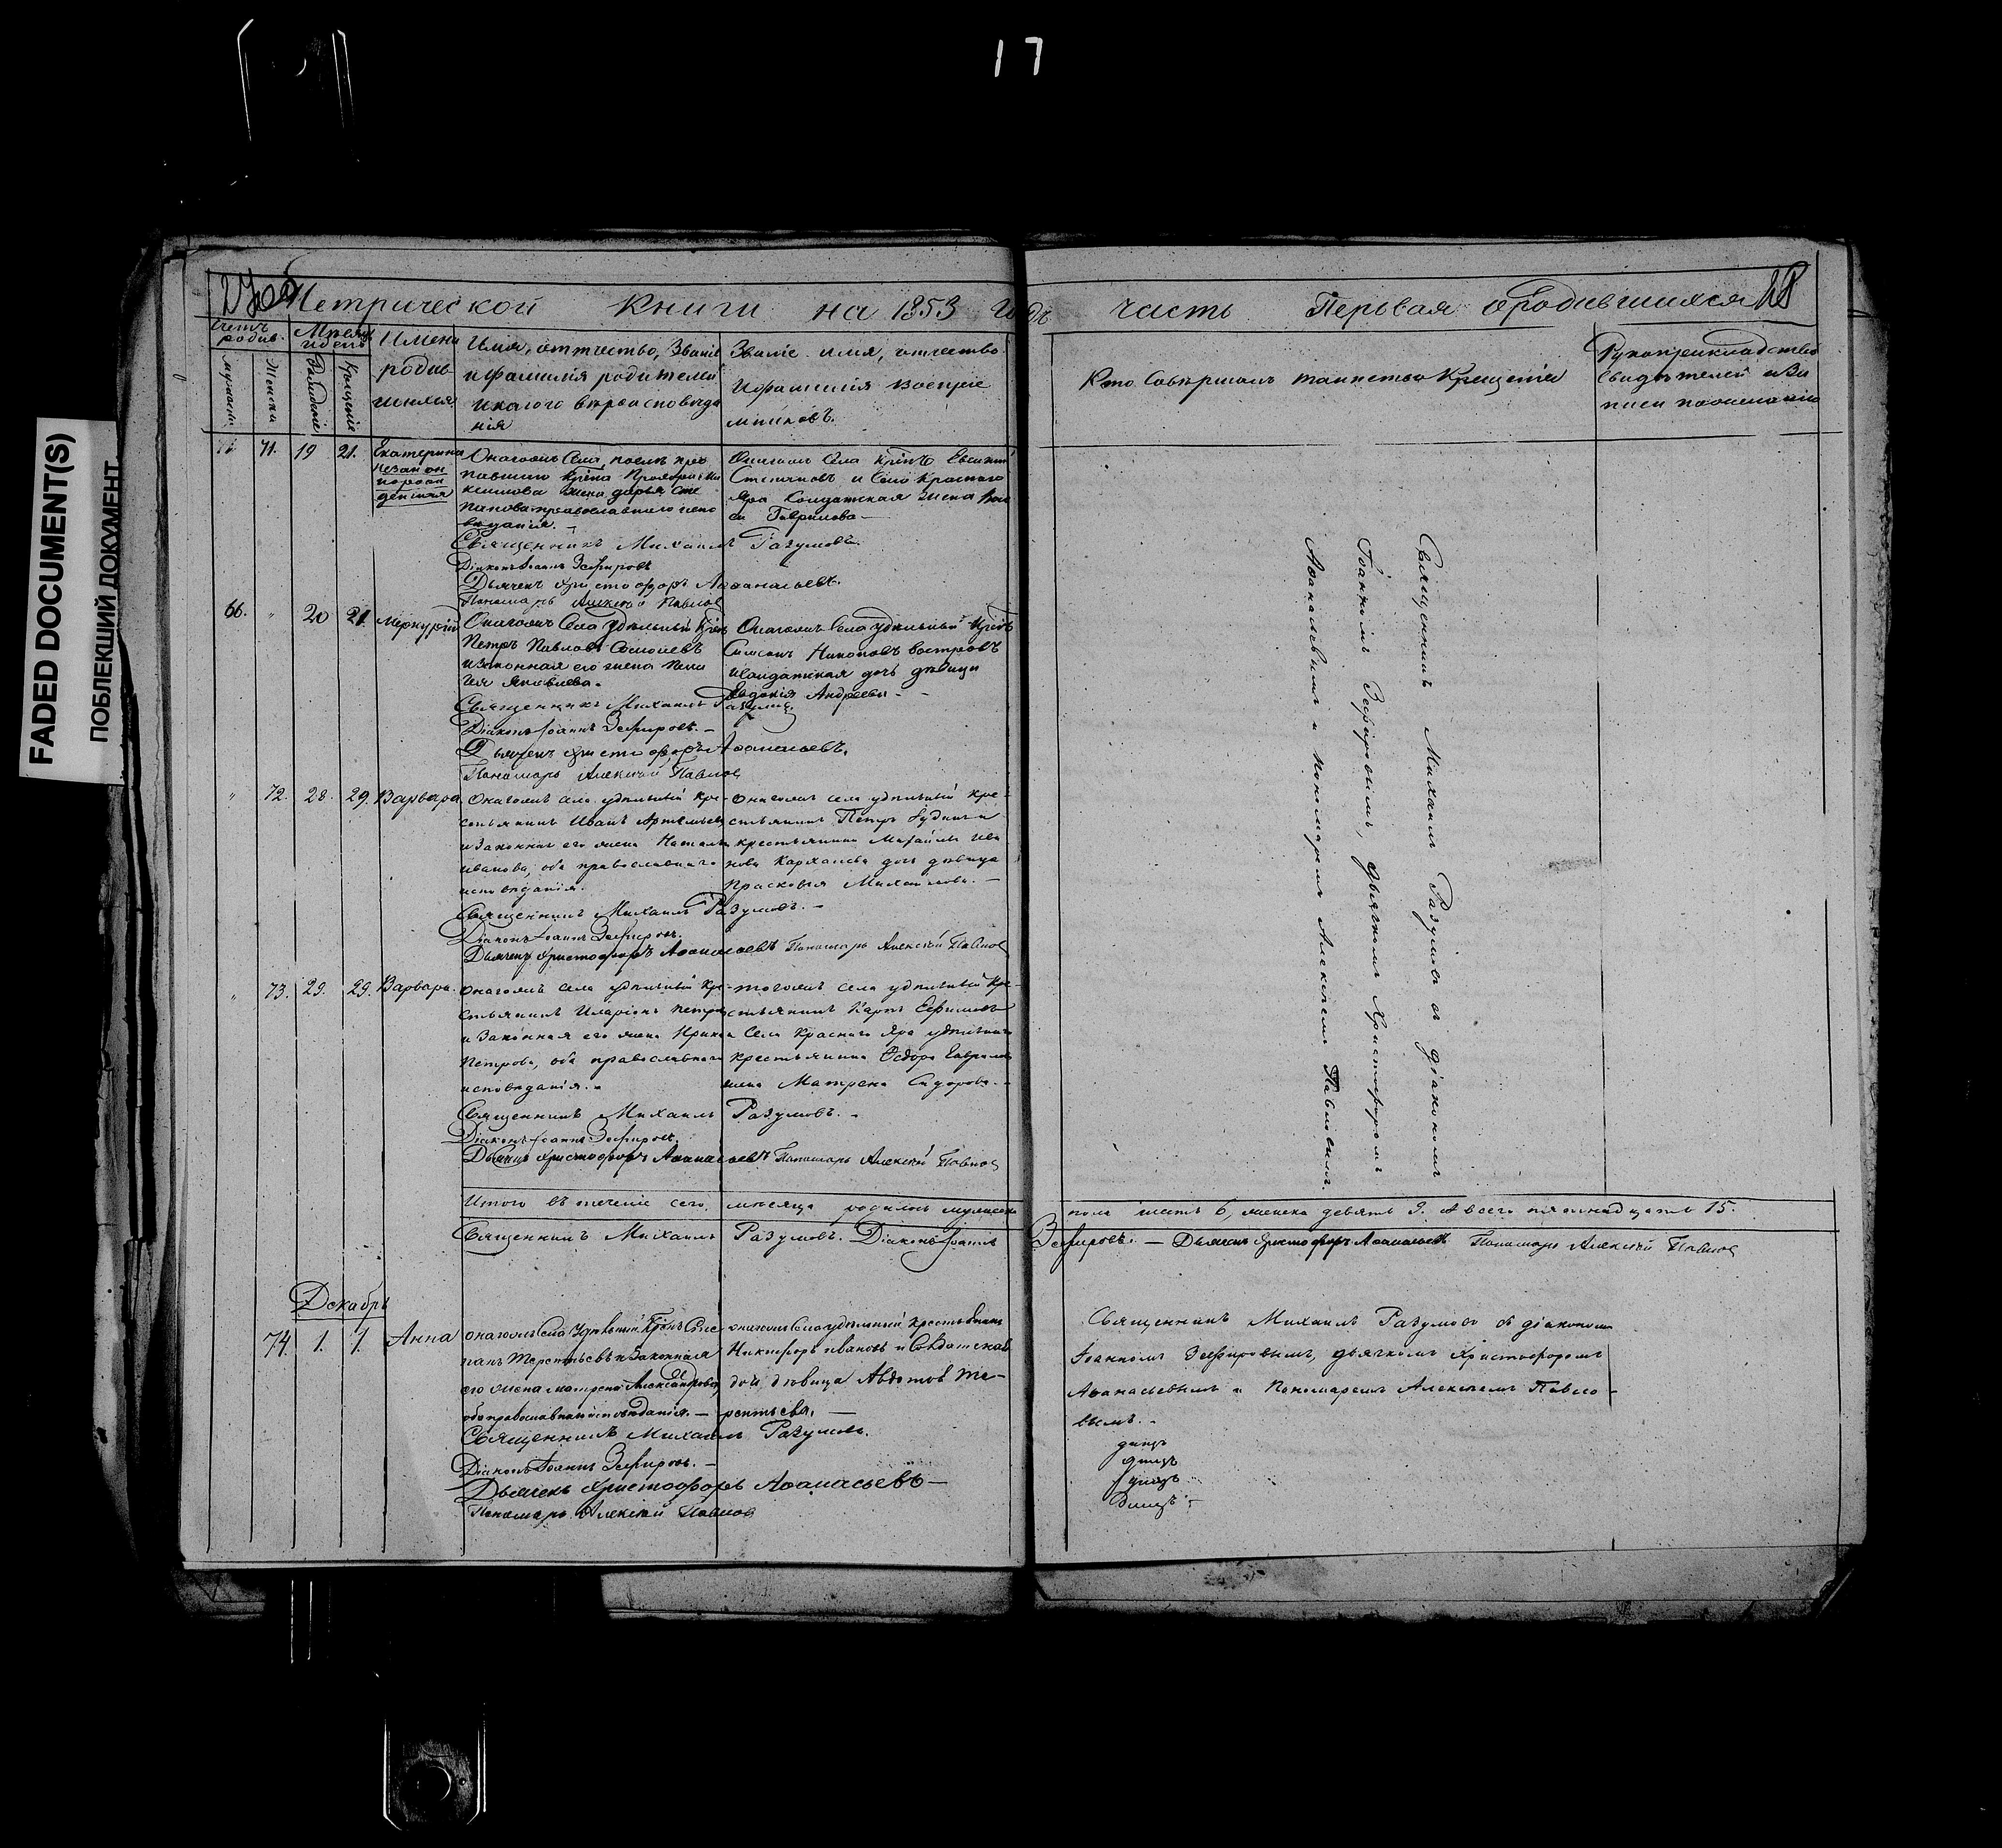 17
FADED DOCUMENT(S)
ПОБЛЕКШИЙ ДОКУМЕНТ
Метрической книги на 1853 годъ часть Первая о Родившихся
Счетъ родив.
Мѣсяцъ и день
Имена
родив
шихся
мужеска
женска
Рожденіе
Крещеніе
Имя, отчество, Званіе
и фамилія родителей
и какого вѣроисповѣда
нія
Званіе имя, отчество
и фамилія воспріе
мниковъ.
Кто Совершалъ таинство Крещенія
Рукоприкладство
Свидѣтелей о За
писи по желанію
71. 19 21. Екатерина
незакон
порож
денная
Онагожъ Села
жена Дарья Сте
панова православнаго испо
вѣданія. —
Онагожъ Села
Степановъ и Села Краснаго
Яра Солдатская жена
Гаврилова —
Священникъ Михаилъ Разумовъ.
Діаконъ Іоаннъ Зефировъ
Дьячекъ Христофоръ Аѳанасьевъ.
Пономарь Алексѣй Павловъ
66. " 20 21. Меркурій
Онагожъ Села Удѣльный
Петръ Павловъ
и законная его жена Пела
гія Яковлева.
Онагожъ Села удѣльный
и Солдатская дочь дѣвица
Евдокія Андреева —
Священникъ Михаилъ Разумовъ.
Діаконъ Іоаннъ Зефировъ. —
Дьячекъ Христофоръ Аѳанасьевъ.
Пономарь Алексѣй Павловъ
" 72. 28. 29. Варвара
Онагожъ села удѣльный кре-
стьянинъ Иванъ Артемьевъ
и Законная его жена Наталья
Иванова, оба православнаго
исповѣданія.
Онагожъ села удѣльный кре-
стьянинъ Петръ
крестьянина Михайла Ива
нова дочь дѣвица
Прасковья Михайлова. —
Священникъ Михаилъ Разумовъ. —
Діаконъ Іоаннъ Зефировъ.
Дьячекъ Христофоръ Аѳанасьевъ Пономарь Алексѣй Павловъ
" 73. 29. 29. Варвара.
Онагожъ села удѣльный кре-
стьянинъ Иларіонъ Петровъ
и Законная его жена
Петрова, оба православнаго
исповѣданія. —
тогожъ села удѣльный кре-
стьянинъ Карпъ Ефимовъ
Села Краснаго Яра удѣльнаго
крестьянина Ѳедора Гаврилова
жена Матрена Сидорова. —
Священникъ Михаилъ Разумовъ. —
Діаконъ Іоаннъ Зефировъ.
Дьячекъ Христофоръ Аѳанасьевъ Пономарь Алексѣй Павловъ
Священникъ Михаилъ Разумовъ съ діакономъ
Іоанномъ Зефировымъ, дьячкомъ Христофоромъ
Аѳанасьевымъ и пономаремъ Алексѣемъ Павловымъ.
Итого въ теченіе сего мѣсяца родилось мужеска пола шесть 6, женска девять 9. А всего пятнадцать 15.
Священникъ Михаилъ Разумовъ. Діаконъ Іоаннъ Зефировъ. — Дьячекъ Христофоръ Аѳанасьевъ Пономарь Алексѣй Павловъ
Декабрь
74. 1. 1. Анна
онагожъ Села Удѣльный Крест: Сте
панъ Терентьевъ и Законная
его жена Матрена Александрова
оба православнаго исповѣданія. —
онагожъ Села удѣльный крестьянинъ
Никифоръ Ивановъ и Солдатская
дочь дѣвица Авдотья Те-
рентьева. —
Священникъ Михаилъ Разумовъ.
Діаконъ Іоаннъ Зефировъ. —
Дьячекъ Христофоръ Аѳанасьевъ —
Пономарь Алексѣй Павловъ
Священникъ Михаилъ Разумовъ съ діакономъ
Іоанномъ Зефировымъ, дьячкомъ Христофоромъ
Аѳанасьевымъ и Пономаремъ Алексѣемъ Павло-
вымъ. —